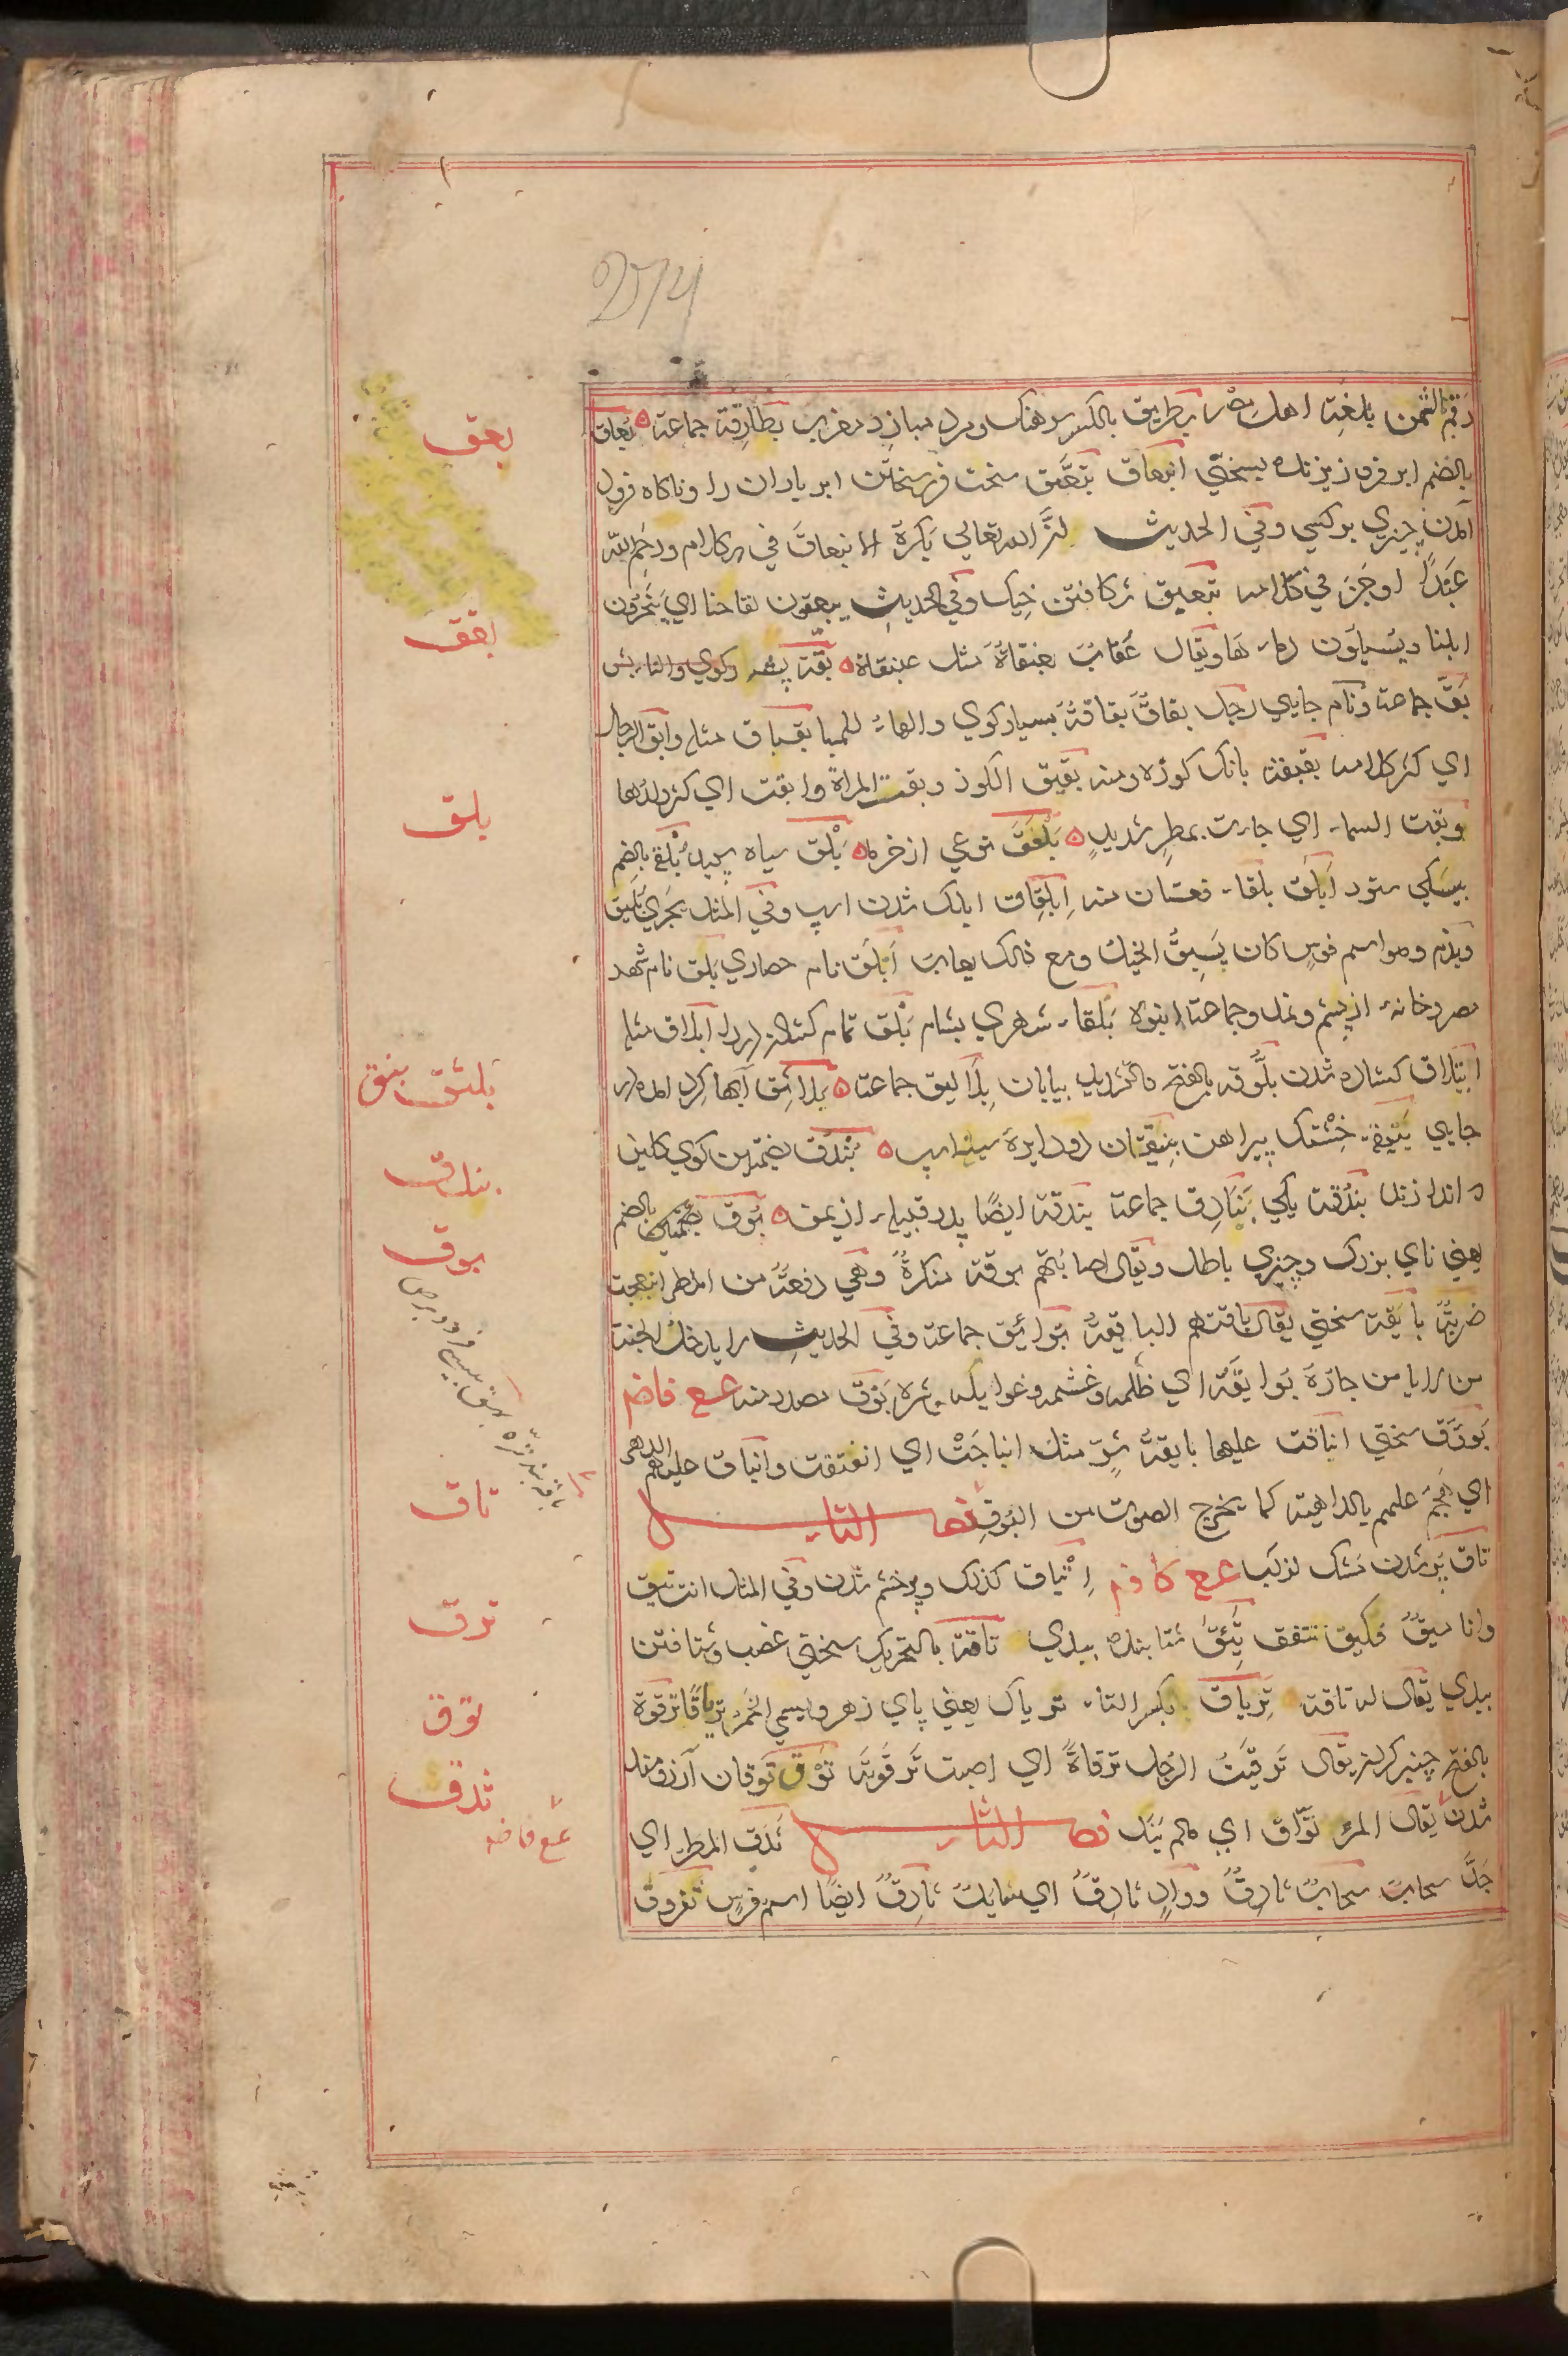 رقم الثمن بلغة اهل مصر بطريق بالكسر سرهنك ومرد مبارز معرب بطارقة جماعة ه بعاق
بالضم ابر فرو ريزنده بسختي انبعاق تبعق سخت فرو ريختن ابر باران را وناكاه فرود
آمدن چيزي بر كسي وفي الحديث ان الله تعالي يكره الانبعاق في الكلام ورحم الله
عبدا اوجز في كلامه تبعيق شكافتن خيك وفي الحديث يبعقون لقاحنا اي ينحرون
ابلنا ويسيلون دماءها ويقال عقاب بعنقاة مثل عبنقاة ه بقة پشه
بق جماعة ونام جايي رجل بقاق بقاقة بسيار كوي والهاء للمبا بقباق مثله وابق الرجل
اي كثر كلامه بقبقة بانك كوزه ومنه بقبق الكوز وبقت المراة وابقت اي كثر ولدها
وبقت السماء اي جاءت بمطر شديد ه بلعق نوعي از خرما ه بلق سياه سپيد بلقة بالضم
پيسكي ستور ابلق بلقاء نعتان منه ابلقاق ابلك شدن اسپ وفي المثل يجري بليق
ويذم وهو اسم فرس كان يسبق الخيل ومع ذلك يعاب ابلق نام حصاري بلق نام شهر
مصر وخانه از پشم ونمد وجماعة انبوه بلقاء شهري بشام بلق تمام كشادن در را ابلاق مثله
ابتلاق كشاده شدن بلوقة بالفتح والتشديد بيابان بلاليق جماعة ه بلاثق آبها كرد آمده در
جايي بنيقة خشتك پيراهن بنيقتان دو دايره سينه اسپ ه بندق بضمتين كوي كلين
كه اندازند بندقة يكي بنادق جماعة بندقة ايضا پدر قبيله از يمن ه بوق بالضم
يعني ناي بزرك وچيزي باطل ويقال اصابتهم بوقة منكرة وهي دفعة من المطر انبعجت
ضربة بايقة سختي يقال باقتهم البايقة بوائق جماعة وفي الحديث لا يدخل الجنة
من لا يامن جاره بوايقه اي ظلمه وغشمه وغوايله وشره بوق مصدر منه ع ع فاضم
بووق سختي انباقت عليهم بايقة شر مثل انباجت اي انفتقت وانباق عليهم الدهر
اي هجم عليهم بالداهية كما يخرج الصوت من البوق فصل التاء
تاق پر شدن مشك لزكب ع ع كافم اتياق كذلك وپر خشم شدن وفي المثل انت تئق
وانا مئق فكيف نتفق تئق شتابنده ببدي تاقة بالتحريك سختي غضب وشتافتن
ببدي يقال له تاقة ترياق بكسر التاء ترياك يعني پاي زهر ويسمي الخمر ترياقا ترقوة
بالفتح چنبر كردن يقال ترقيت الرجل ترقاة اي اصبت ترقوته توق توقان آرزومند
شدن يقال المرء تواق الي ما لم ينل فصل الثاء ثدق المطر اي
جد سحاب سحاب ثادق وواد ثادق اي سايل ثادق ايضا اسم فرس ثفروق
بعق
بقق
بلق
بلثق بنق
بندق
بوق
تاق
ترق
توق
ثدق
ع ع فاضم